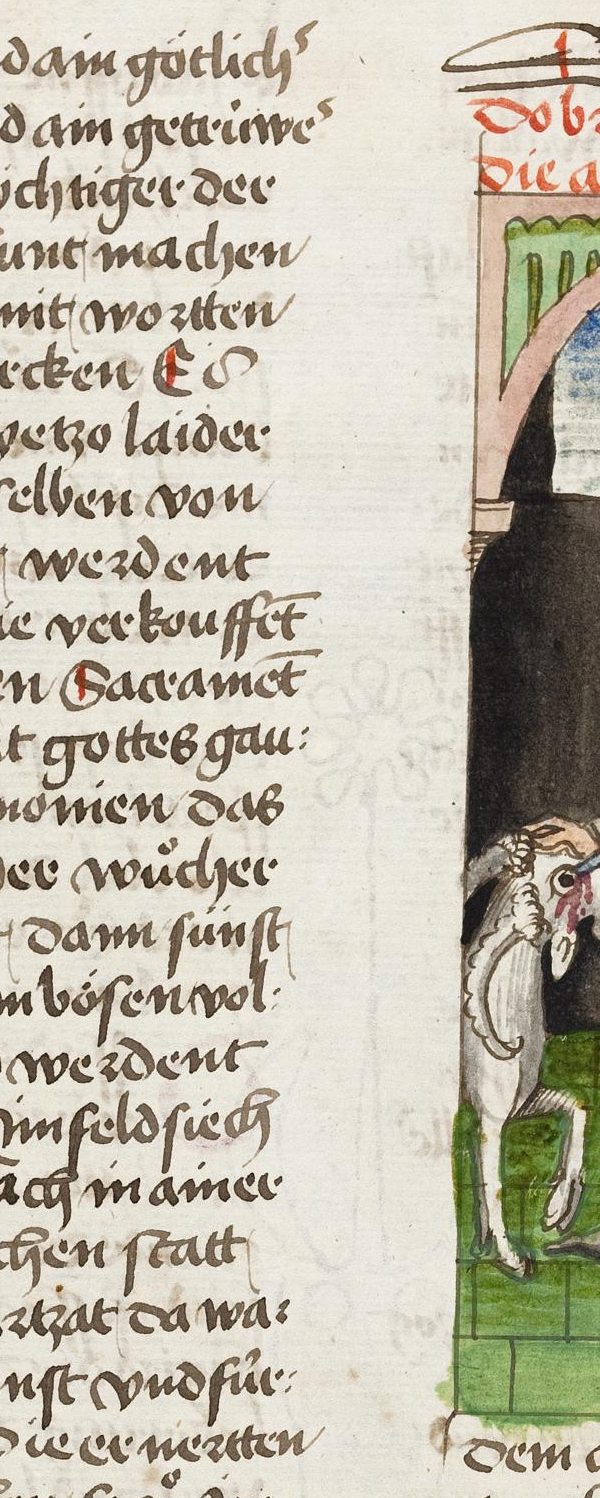 d ain götlich
d ain getrüwe
chtiger der
sunt machen
mit wortten
ecken Es
yetzo laider
selben von
werdent
ie verkouffet̄
en Sacramet̄
t gottes gau:
monien das
her wůcher
dann sünst
in bösen vol:
werdent
in feldsiech
ach in ainer
chen statt
rtzat da war
nst vnd für:
Die er nertten
Do br
Die a
dem